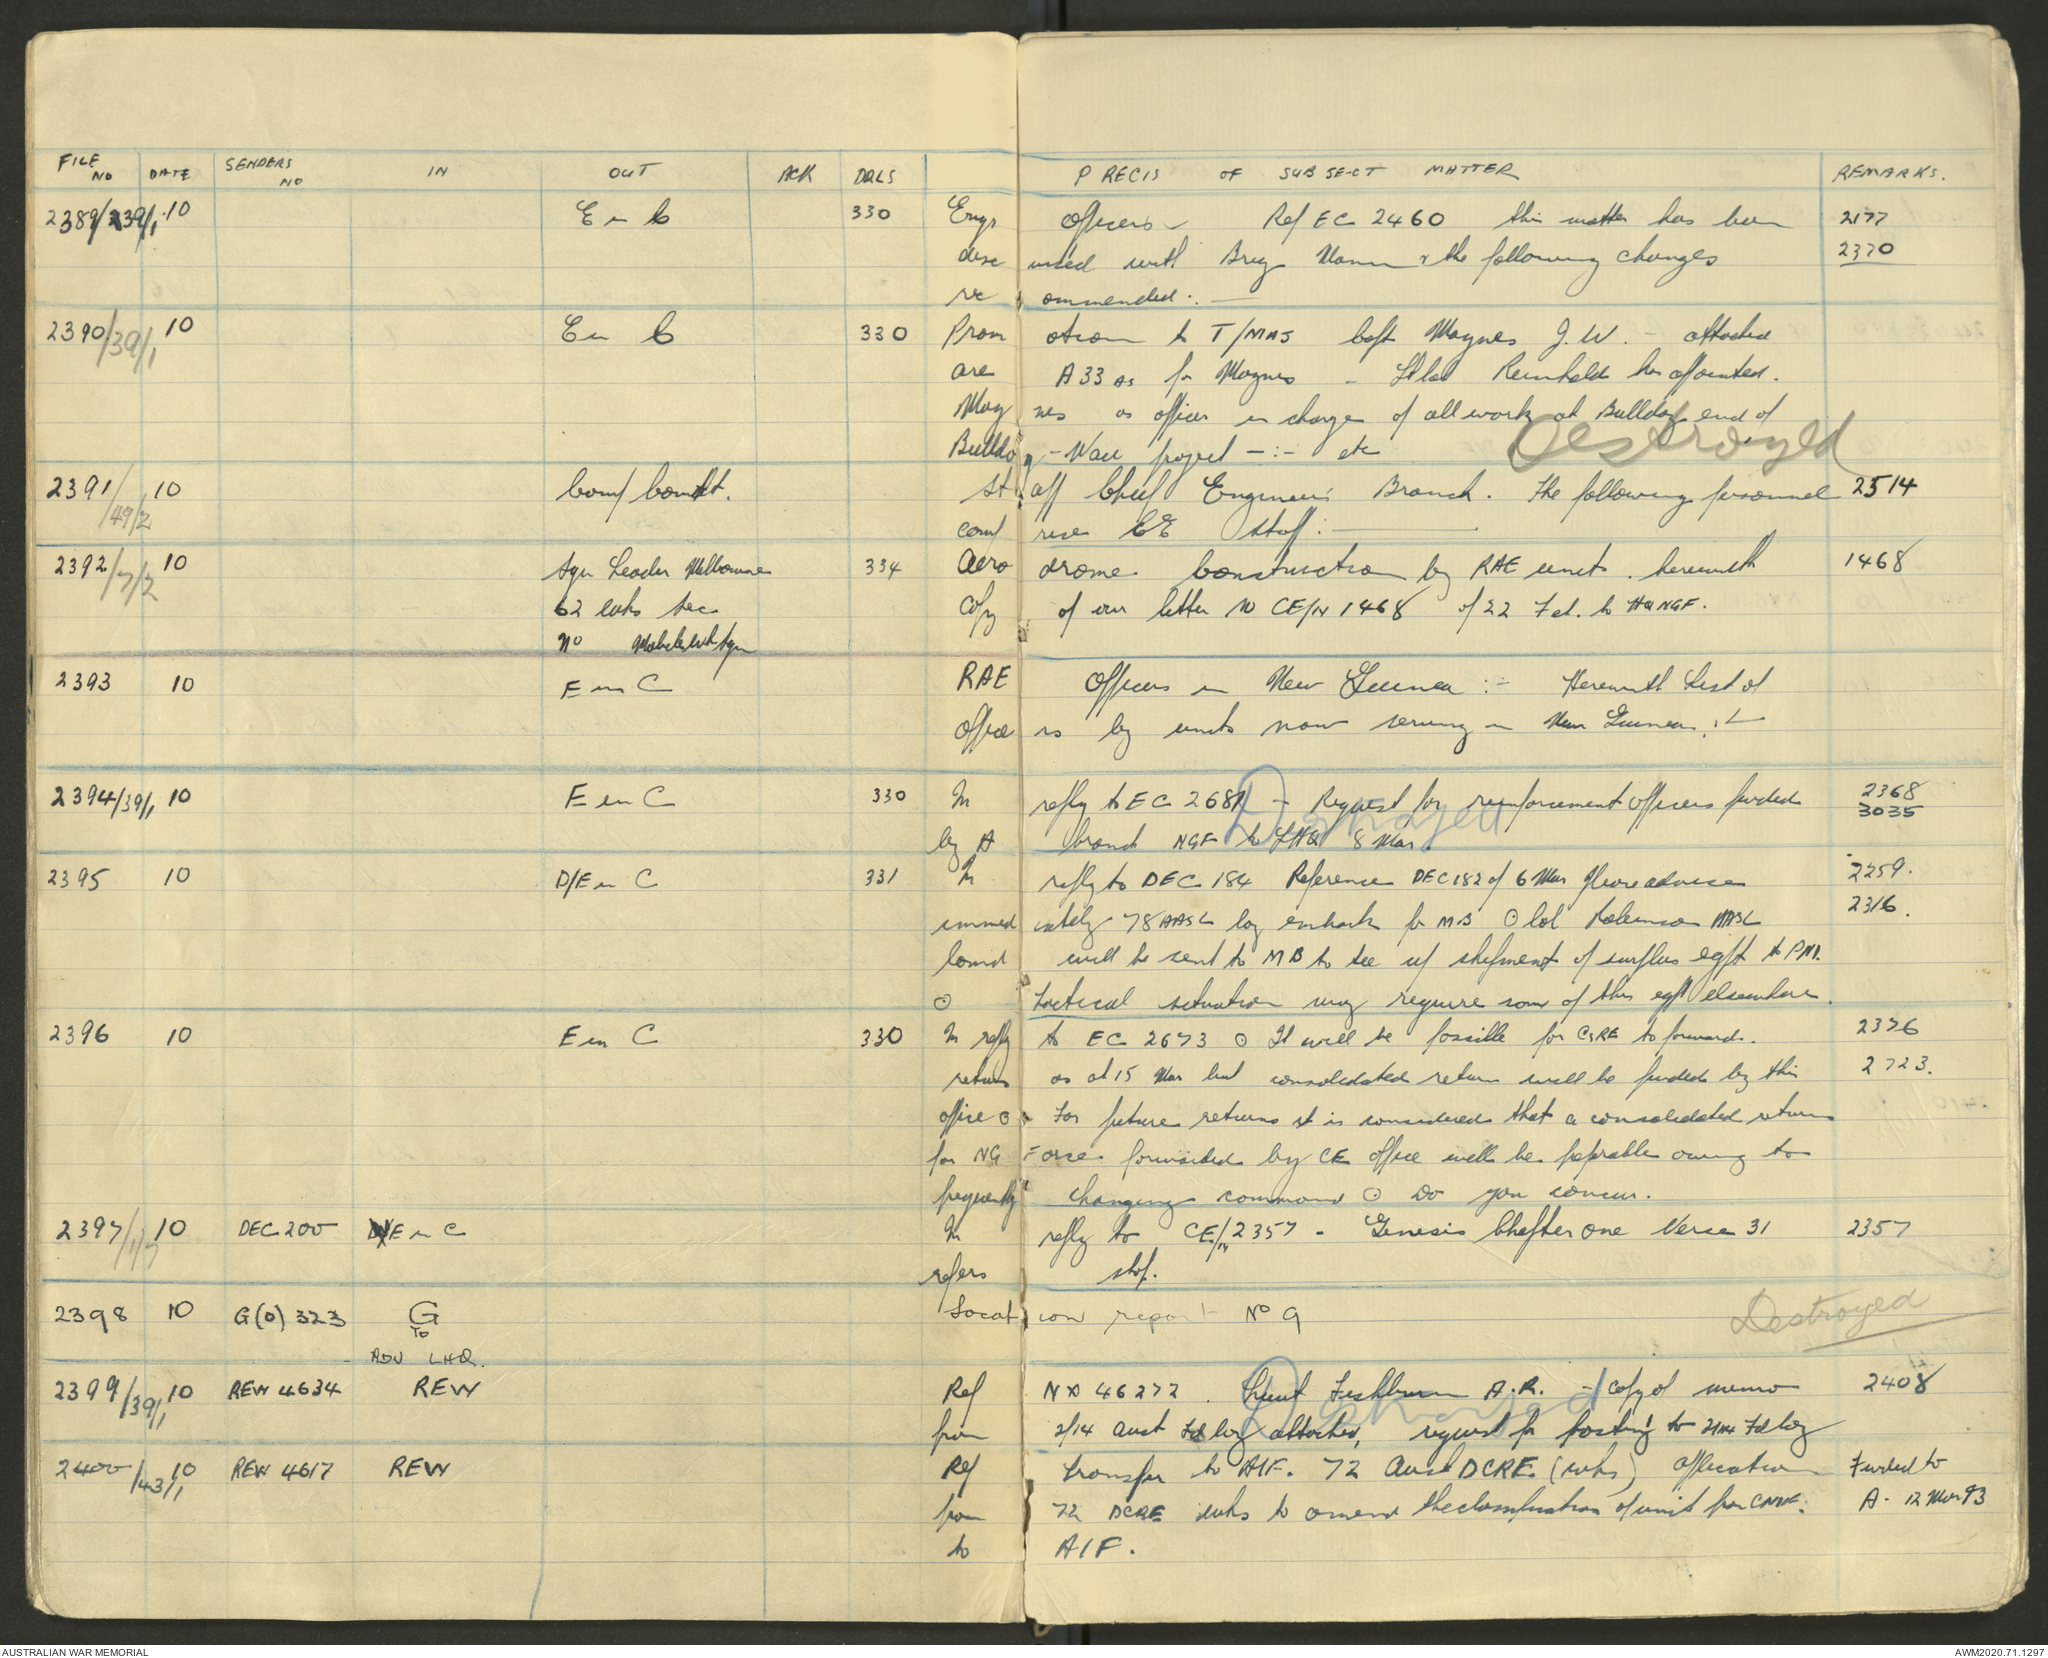 FILE NO DATE SENDERS NO IN OUT ACK DRLS PRECIS OF SUBJECT MATTER REMARKS.
2389/239/1 10 E in C 330 Engr Officers - Ref EC 2460 this matter has been 2177
discussed with Brig Mann & the following changes 2370
recommended :-
2390/39/1 10 E in C 330 Promotion to T/MAJ Capt Maynes J.W. - attached
are A33 as for Maynes - Lt Col Reinhold has appointed.
Maynes as officer in charge of all work at Bulldog end of
Bulldog - Wau project - :- etc Destroyed
2391/49/2 10 Staff Chief Engineers Branch. The following personnel 2514
comprise CE staff :
2392/7/2 10 Sqn Leader Melbourne 334 Aerodrome Construction by RAE units. herewith 1468
62 wks sec copy of our letter No CE/N 1468 of 22 Feb. to HQ NGF.
No
2393 10 E in C RAE Officers in New Guinea :- Herewith list of
Officers by units now serving in New Guinea :-
2394/39/1 10 E in C 330 In reply to EC 2681 - Request for reinforcement officers fwded 2368
3035
by A branch NGF to LHQ 8 Mar. Destroyed
2395 10 D/E in C 331 In reply to DEC 184 Reference DEC 182 of 6 Mar Please advise 2259.
immediately 78 AASL Coy embark for MB O Col Robinson AASL 2316.
Comd will be sent to MB to see up shipment of surplus eqpt to PM.
O Tactical situation may require some of this eqpt elsewhere.
2396 10 E in C 330 In reply to EC 2673 O It will be possible for CsRE to forward. 2376
returns as at 15 Mar but consolidated return will be fwded by this 2723.
office O For future returns it is considered that a consolidated return
for NG Force forwarded by CE office will be preferable owing to
frequently changing command O Do you concur.
2397/1/7 10 DEC 200 D/E in C In reply to CE/N 2357 - Genesis Chapter One Verse 31 2357
refers stop.
2398 10 G(O) 323 G Location report No 9 Destroyed
TO
ADV LHQ.
2399/39/1 10 REW 4634 REW Ref NX 46272. Lieut Fishburn A.R. - copy of memo 2408
from 2/14 Aust Fd Coy attached, request for posting to Fd Coy Destroyed
2400/43/1 10 REW 4617 REW Ref Transfer to AIF. 72 Aust DCRE (wks) application Fwded to
from 72 DCRE wks to amend the classification of unit from CMF. A. 12 Mar 43
to AIF.
AUSTRALIAN WAR MEMORIAL AWM2020.71.1297